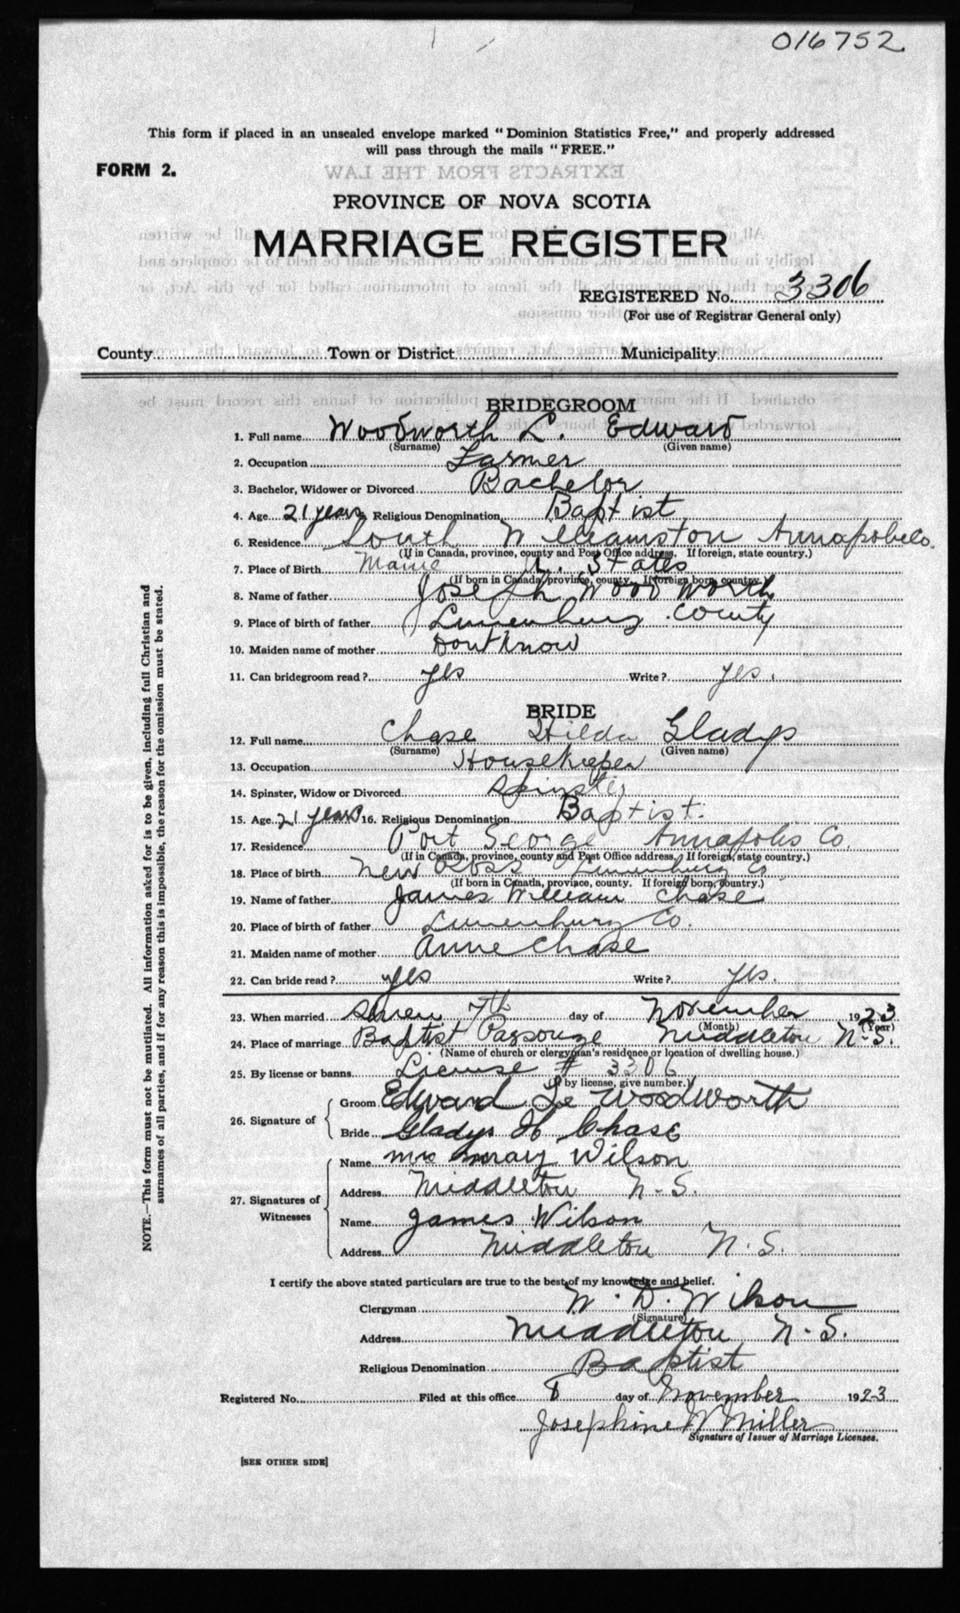 016752
This form if placed in an unsealed envelope marked "Dominion Statistics Free," and properly addressed
will pass through the mails "FREE."
FORM 2.
EXTRACTS FROM THE LAW
PROVINCE OF NOVA SCOTIA
MARRIAGE REGISTER
REGISTERED No. 3306
(For use of Registrar General only)
County Town or District Municipality
BRIDEGROOM
1. Full name Woodworth L. Edward
(Surname) (Given name)
2. Occupation Farmer
3. Bachelor, Widower or Divorced Bachelor
4. Age 21 years Religious Denomination Baptist
6. Residence South Williamston Annapolis
(If in Canada, province, county and Post Office address. If foreign, state country.)
7. Place of Birth Maine U. States
(If born in Canada, province, county. If foreign born, country.)
8. Name of father Joseph Woodworth
9. Place of birth of father Lunenburg County
10. Maiden name of mother Dont know
11. Can bridegroom read? yes Write? yes.
BRIDE
12. Full name Chase Hilda Gladys
(Surname) (Given name)
13. Occupation Housekeeper
14. Spinster, Widow or Divorced Spinster
15. Age 21 years 16. Religious Denomination Baptist.
17. Residence Port George Annapolis Co.
(If in Canada, province, county and Post Office address. If foreign, state country.)
18. Place of birth New Ross Lunenburg Co
(If born in Canada, province, county. If foreign born, country.)
19. Name of father James William Chase
20. Place of birth of father Lunenburg Co.
21. Maiden name of mother Anne Chase
22. Can bride read? yes Write? yes.
23. When married 7th day of November 1923
(Month) (Year)
24. Place of marriage Baptist Parsonage Middleton N-S.
(Name of church or clergyman's residence or location of dwelling house.)
25. By license or banns License # 3306
(If by license, give number.)
26. Signature of Groom Edward Le Woodworth
Bride Gladys H Chase
27. Signatures of Witnesses Name Mrs Wilson
Address Middleton N-S.
Name James Wilson
Address Middleton N.S.
I certify the above stated particulars are true to the best of my knowledge and belief.
Clergyman W. D. Wilson
(Signature)
Address Middleton N-S.
Religious Denomination Baptist
Registered No. Filed at this office 8 day of November 1923
Josephine W Miller
Signature of Issuer of Marriage Licenses.
[SEE OTHER SIDE]
NOTE.—This form must not be mutilated. All information asked for is to be given, including full Christian and
surnames of all parties, and if for any reason this is impossible, the reason for the omission must be stated.